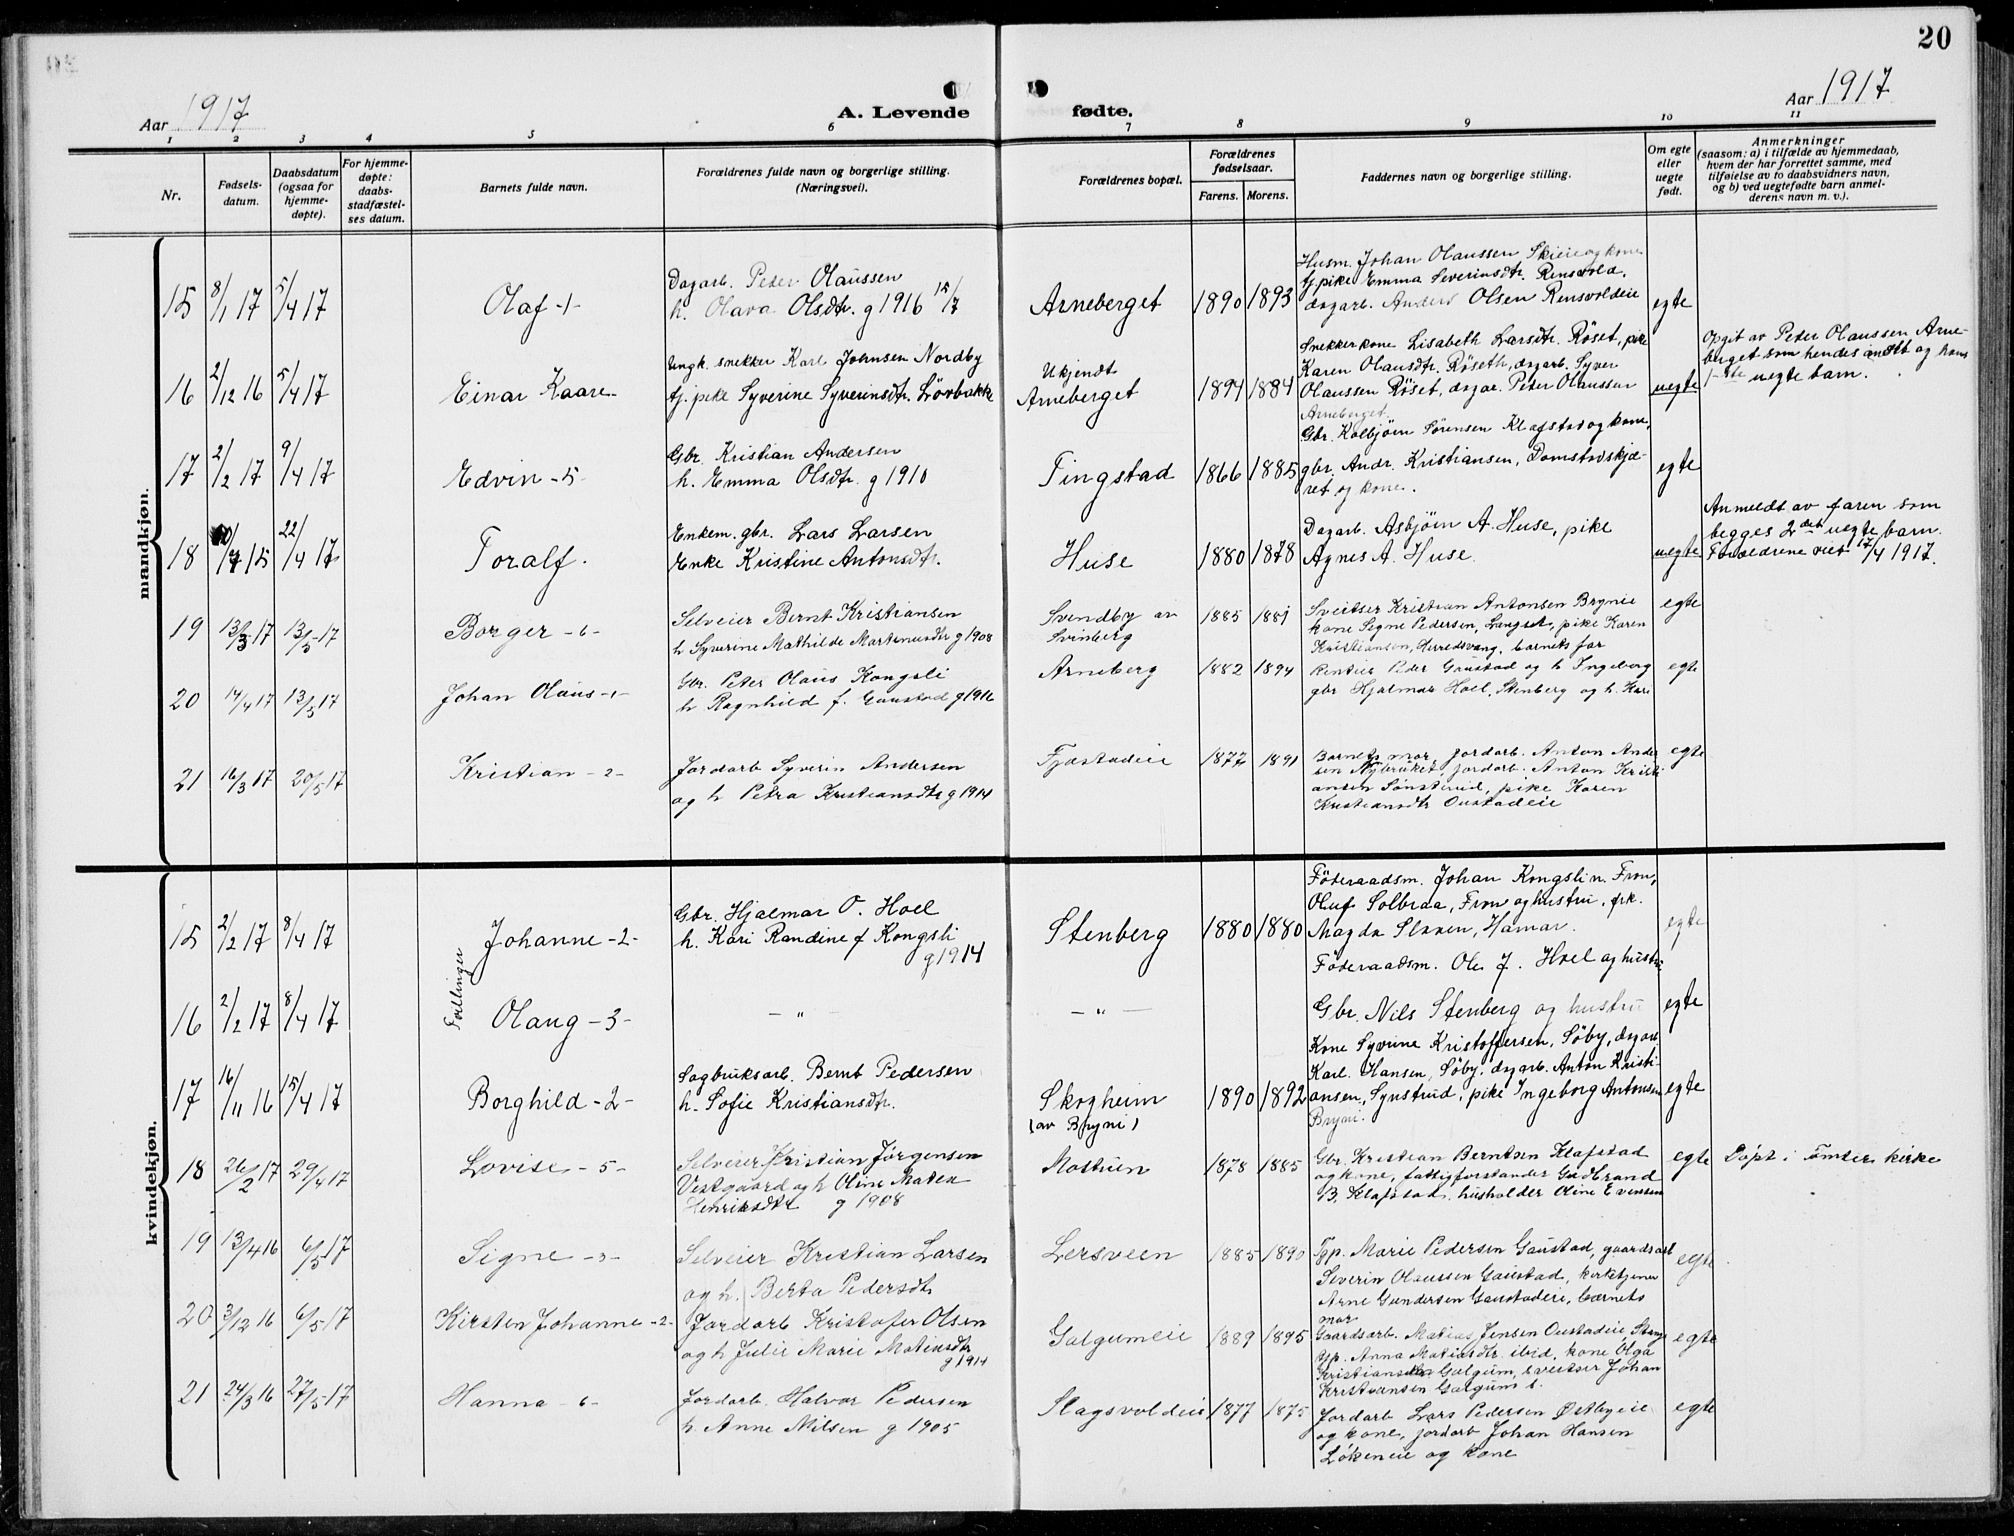 20
Aar 1917
A. Levende fødte.
Aar 1917
1 2 3 4 5 6 7 8 9 10 11
Nr.
Fødsels-
datum.
Daabsdatum
(ogsaa for
hjemme-
døpte).
For hjemme-
døpte:
daabs-
stadfæstel-
ses datum.
Barnets fulde navn.
Forældrenes fulde navn og borgerlige stilling.
(Næringsvei).
Forældrenes bopæl.
Forældrenes
fødselsaar.
Farens. Morens.
Faddernes navn og borgerlige stilling.
Om egte
eller
uegte
født.
Anmerkninger
(saasom: a) i tilfælde av hjemmedaab,
hvem der har forrettet samme, med
tilføielse av to daabsvidners navn,
og b) ved uegtefødte barn anmel-
derens navn m. v.).
mandkjøn.
15 8/1 17 5/4 17 Olaf -1-
Dagarb. Peter Olaussen
h. Olava Olsdtr. g 1916 15/7
Arneberget 1890 1893
Husm. Johan Olaussen Skieie og kone
tj. pike Emma Severinsdtr. Rensvold,
dagarb. Anders Olsen Rensvoldeie
egte
16 2/12 16 5/4 17 Einar Kaare
Ungk. snekker Karl Johnsen Nordby
tj. pike Syverine Syverinsdtr. Lövbakke
Ukjendt
Arneberget 1894 1884
Snekkerkone Lisabeth Larsdtr. Røset, pike
Karen Olausdtr. Röseth, dagarb. Syver
Olaussen Röset, dagar. Peter Olaussen
Arneberget.
uegte
Opgit av Peter Olaussen Arne-
berget som hendes andet og hans
1-ste uegte barn.
17 2/2 17 9/4 17 Edvin -5-
Gbr. Kristian Andersen
h. Emma Olsdtr. g 1910
Tingstad 1866 1885
Gbr. Kolbjörn Sörensen Klafstad og kone,
gbr. Andr. Kristiansen, Domstadskjæ-
ret og kone.
egte
18 /4 15 22/4 17 Toralf.
Enkem. gbr. Lars Larsen
Enke Kristine Antonsdtr.
Huse 1880 1878
Dagarb. Asbjörn A. Huse, pike
Agnes A. Huse.
uegte
Anmeldt av faren som
begges 2det uegte barn.
Forældrene viet 17/4 1917.
19 13/3 17 13/5 17 Borger -6-
Selveier Bernt Kristiansen
h Syverine Mathilde Martenusdtr g 1908
Svendby av
Svinberg 1885 1881
Sveitser Kristian Antonsen Brynie
kone Segne Pedersen, Langset, pike Karen
Kristiansen, Herredsvang, barnets far
egte
20 14/4 17 13/5 17 Johan Olaus -1-
Gbr. Peter Olaus Kongsli
h Ragnhild f. Gaustad g 1916
Arneberg 1882 1894
Rentier Peder Gaustad og h Ingeborg
gbr Hjalmar Hoel, Stenberg og h. Kari
egte
21 16/3 17 20/5 17 Kristian -2-
Jordarb Syverin Andersen
og h Petra Kristiansdtr g 1914
Fjæstadeie 1877 1891
Barnets mor, jordarb. Anton Ander
sen Nybruket, jordarb. Anton Kristi
ansen Sønsterud, pike Karen
Kristiansdtr Oustadeie
egte
kvindekjøn.
15 2/2 17 8/4 17 Johanne -2-
Gbr. Hjalmar O. Hoel
h. Kari Randine f Kongsli
g 1914
Stenberg 1880 1880
Föderaadsm. Johan Kongsli n. Fron,
Oluf Solbraa, Fron og hustru, frk.
Magda Slaaen, Hamar.
egte
16 2/2 17 8/4 17 Tvillinger Olaug -3-
- " - - " -
Föderaadsm. Ole J. Hoel og hustru
Gbr. Nils Stenberg og hustru
egte
17 16/11 16 15/4 17 Borghild -2-
Sagbruksarb. Bernt Pedersen
h. Sofie Kristiansdtr.
Skogheim
(av Bryni) 1890 1892
Kone Syverine Kristoffersen, Söby, dagarb
Karl. Hansen, Söby, dagarb. Anton Kristi-
ansen, Synstrud, pike Ingeborg Antonsen
Bryni.
egte
18 26/2 17 29/4 17 Lovise -5-
Selveier Kristian Jörgensen
Vestgaard og h Oline Matea
Henriksdtr g 1908
Mostuen 1878 1885
Gbr. Kristian Berntsen Klafstad
og kone, fattigforstander Gudbrand
B. Klafstad, husholder Oline Evensen
egte
Döpt i Tomter kirke
19 13/4 16 6/5 17 Signe -3-
Selveier Kristian Larsen
og h. Berta Pedersdtr
Lersveen 1885 1890
Tjp. Marie Pedersen Gaustad, gaardsarb
Severin Olaussen Gaustad, kirketjener
Arne Gundersen Gaustadeie, barnets
mor
egte
20 3/12 16 6/5 17 Kirsten Johanne -2-
Jordarb Kristofer Olsen
og h Julie Marie Matiasdtr
g 1914
Galgumeie 1889 1895
Gaardsarb. Matias Jensen Oustadeie, Stange
tjp. Anna Matiasdtr. ibid, kone Olga
Kristiansdtr Galgum, sveitser Johan
Kristiansen Galgum
egte
21 24/3 16 27/5 17 Hanna -6-
Jordarb. Halvor Pedersen
h. Anne Nilsen g 1905
Slagsvoldeie 1877 1875
Jordarb Lars Pedersen Østbyeie
og kone, jordarb Johan Hansen
Løkeneie og kone
egte